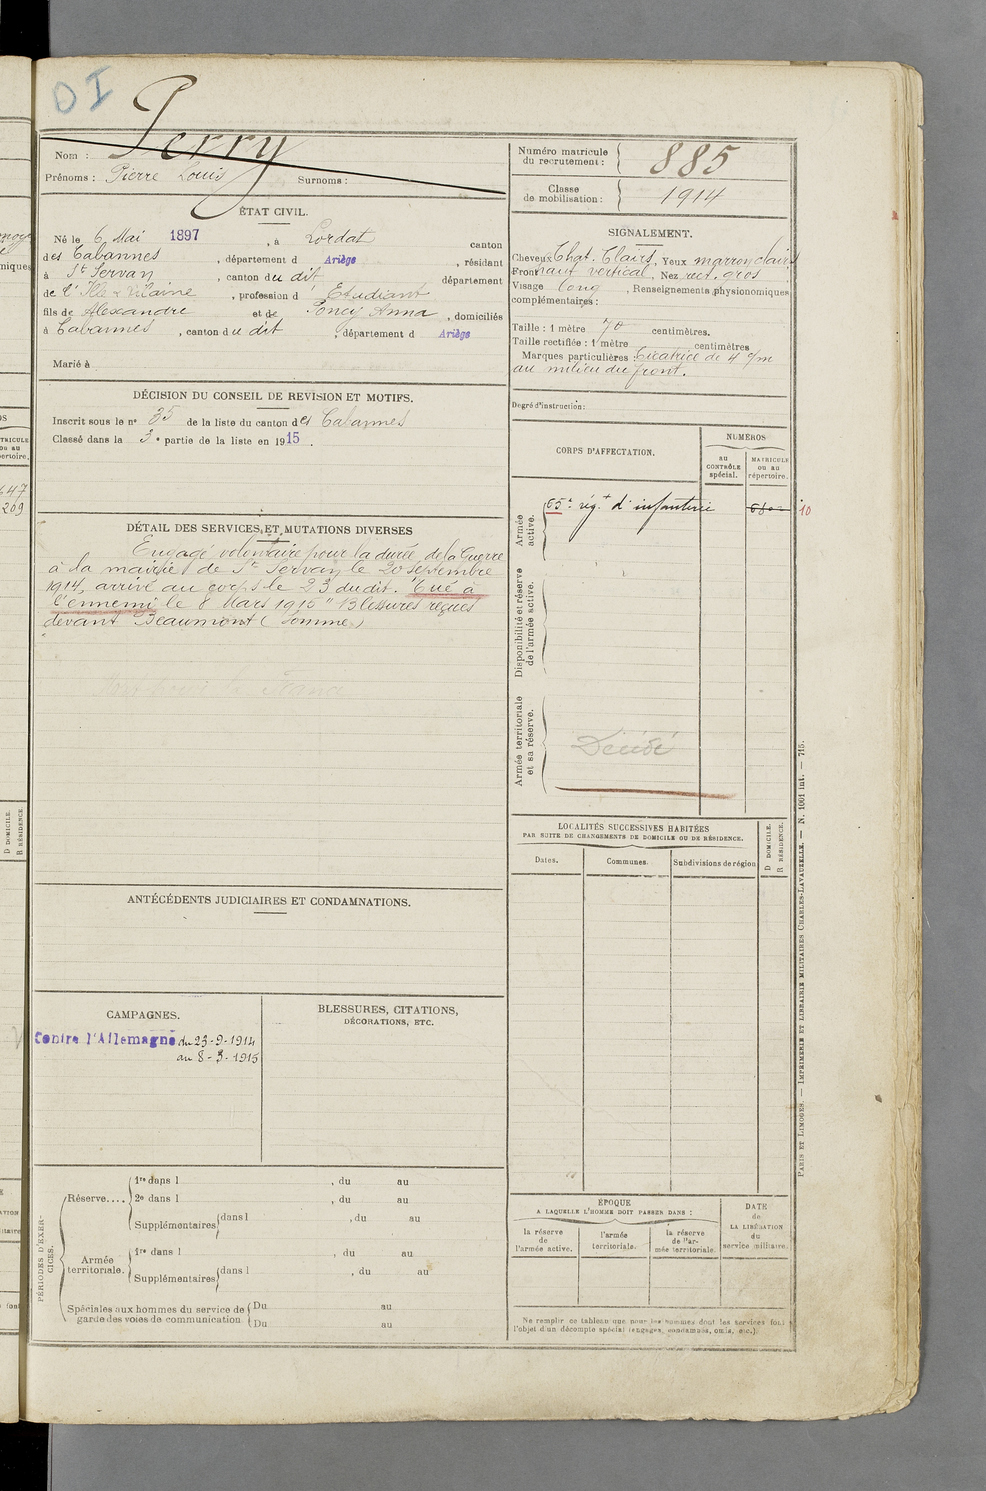 DI
Perry
Nom :
Prénoms : Pierre Louis Surnoms :
Numéro matricule du recrutement : 885
Classe de mobilisation : 1914
ÉTAT CIVIL.
Né le 6 Mai 1897, à Lordat canton
des Cabannes, département d Ariège, résidant
à St Servan, canton du dit département
de l'Ille & Vilaine, profession d' Etudiant
fils de Alexandre et de Poncy Anna, domiciliés
à Cabannes, canton du dit, département d Ariège
Marié à
SIGNALEMENT.
Cheveux Chat. Clairs, Yeux marron clairs
Front haut vertical, Nez rect. gros
Visage long, Renseignements physionomiques
complémentaires :
Taille : 1 mètre 70 centimètres.
Taille rectifiée : 1 mètre centimètres
Marques particulières : Cicatrice de 4 c/m
au milieu du front.
Degré d'instruction :
DÉCISION DU CONSEIL DE REVISION ET MOTIFS.
Inscrit sous le nº 35 de la liste du canton des Cabannes
Classé dans la 3e partie de la liste en 1915.
CORPS D'AFFECTATION.
NUMÉROS
au CONTRÔLE spécial.
MATRICULE ou au répertoire.
Armée active.
65e régt d'infanterie
10
Disponibilité et réserve de l'armée active.
Armée territoriale et sa réserve.
Décédé
DÉTAIL DES SERVICES ET MUTATIONS DIVERSES
Engagé volontaire pour la durée de la Guerre
à la mairie de St Servan le 20 septembre
1914, arrivé au corps le 23 du dit. "Tué à
l'ennemi le 8 Mars 1915" Blessures reçues
devant Beaumont (Somme)
LOCALITÉS SUCCESSIVES HABITÉES
PAR SUITE DE CHANGEMENTS DE DOMICILE OU DE RÉSIDENCE.
Dates.
Communes.
Subdivisions de région
D DOMICILE.
R RÉSIDENCE.
ANTÉCÉDENTS JUDICIAIRES ET CONDAMNATIONS.
CAMPAGNES.
Contre l'Allemagne du 23-9-1914
au 8-3-1915
BLESSURES, CITATIONS,
DÉCORATIONS, ETC.
PÉRIODES D'EXERCICES.
Réserve....
1re dans l , du au
2e dans l , du au
Supplémentaires dans l , du au
Armée territoriale.
1re dans l , du au
Supplémentaires dans l , du au
Spéciales aux hommes du service de
garde des voies de communication.
Du au
Du au
ÉPOQUE
A LAQUELLE L'HOMME DOIT PASSER DANS :
la réserve de l'armée active.
l'armée territoriale.
la réserve de l'armée territoriale.
DATE de LA LIBÉRATION du service militaire.
Ne remplir ce tableau que pour les hommes dont les services font
l'objet d'un décompte spécial (engagés, condamnés, omis, etc.).
PARIS ET LIMOGES. — IMPRIMERIE ET LIBRAIRIE MILITAIRES CHARLES-LAVAUZELLE. — N. 1001 int. — 715.